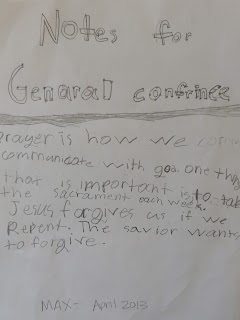 Notes for
Genaral confrince
prayer is how we com
communicate with god. one thing
that is important is to take
the sacrament each week.
Jesus forgives us if we
Repent. The savior wants
to forgive.
MAX - April 2013